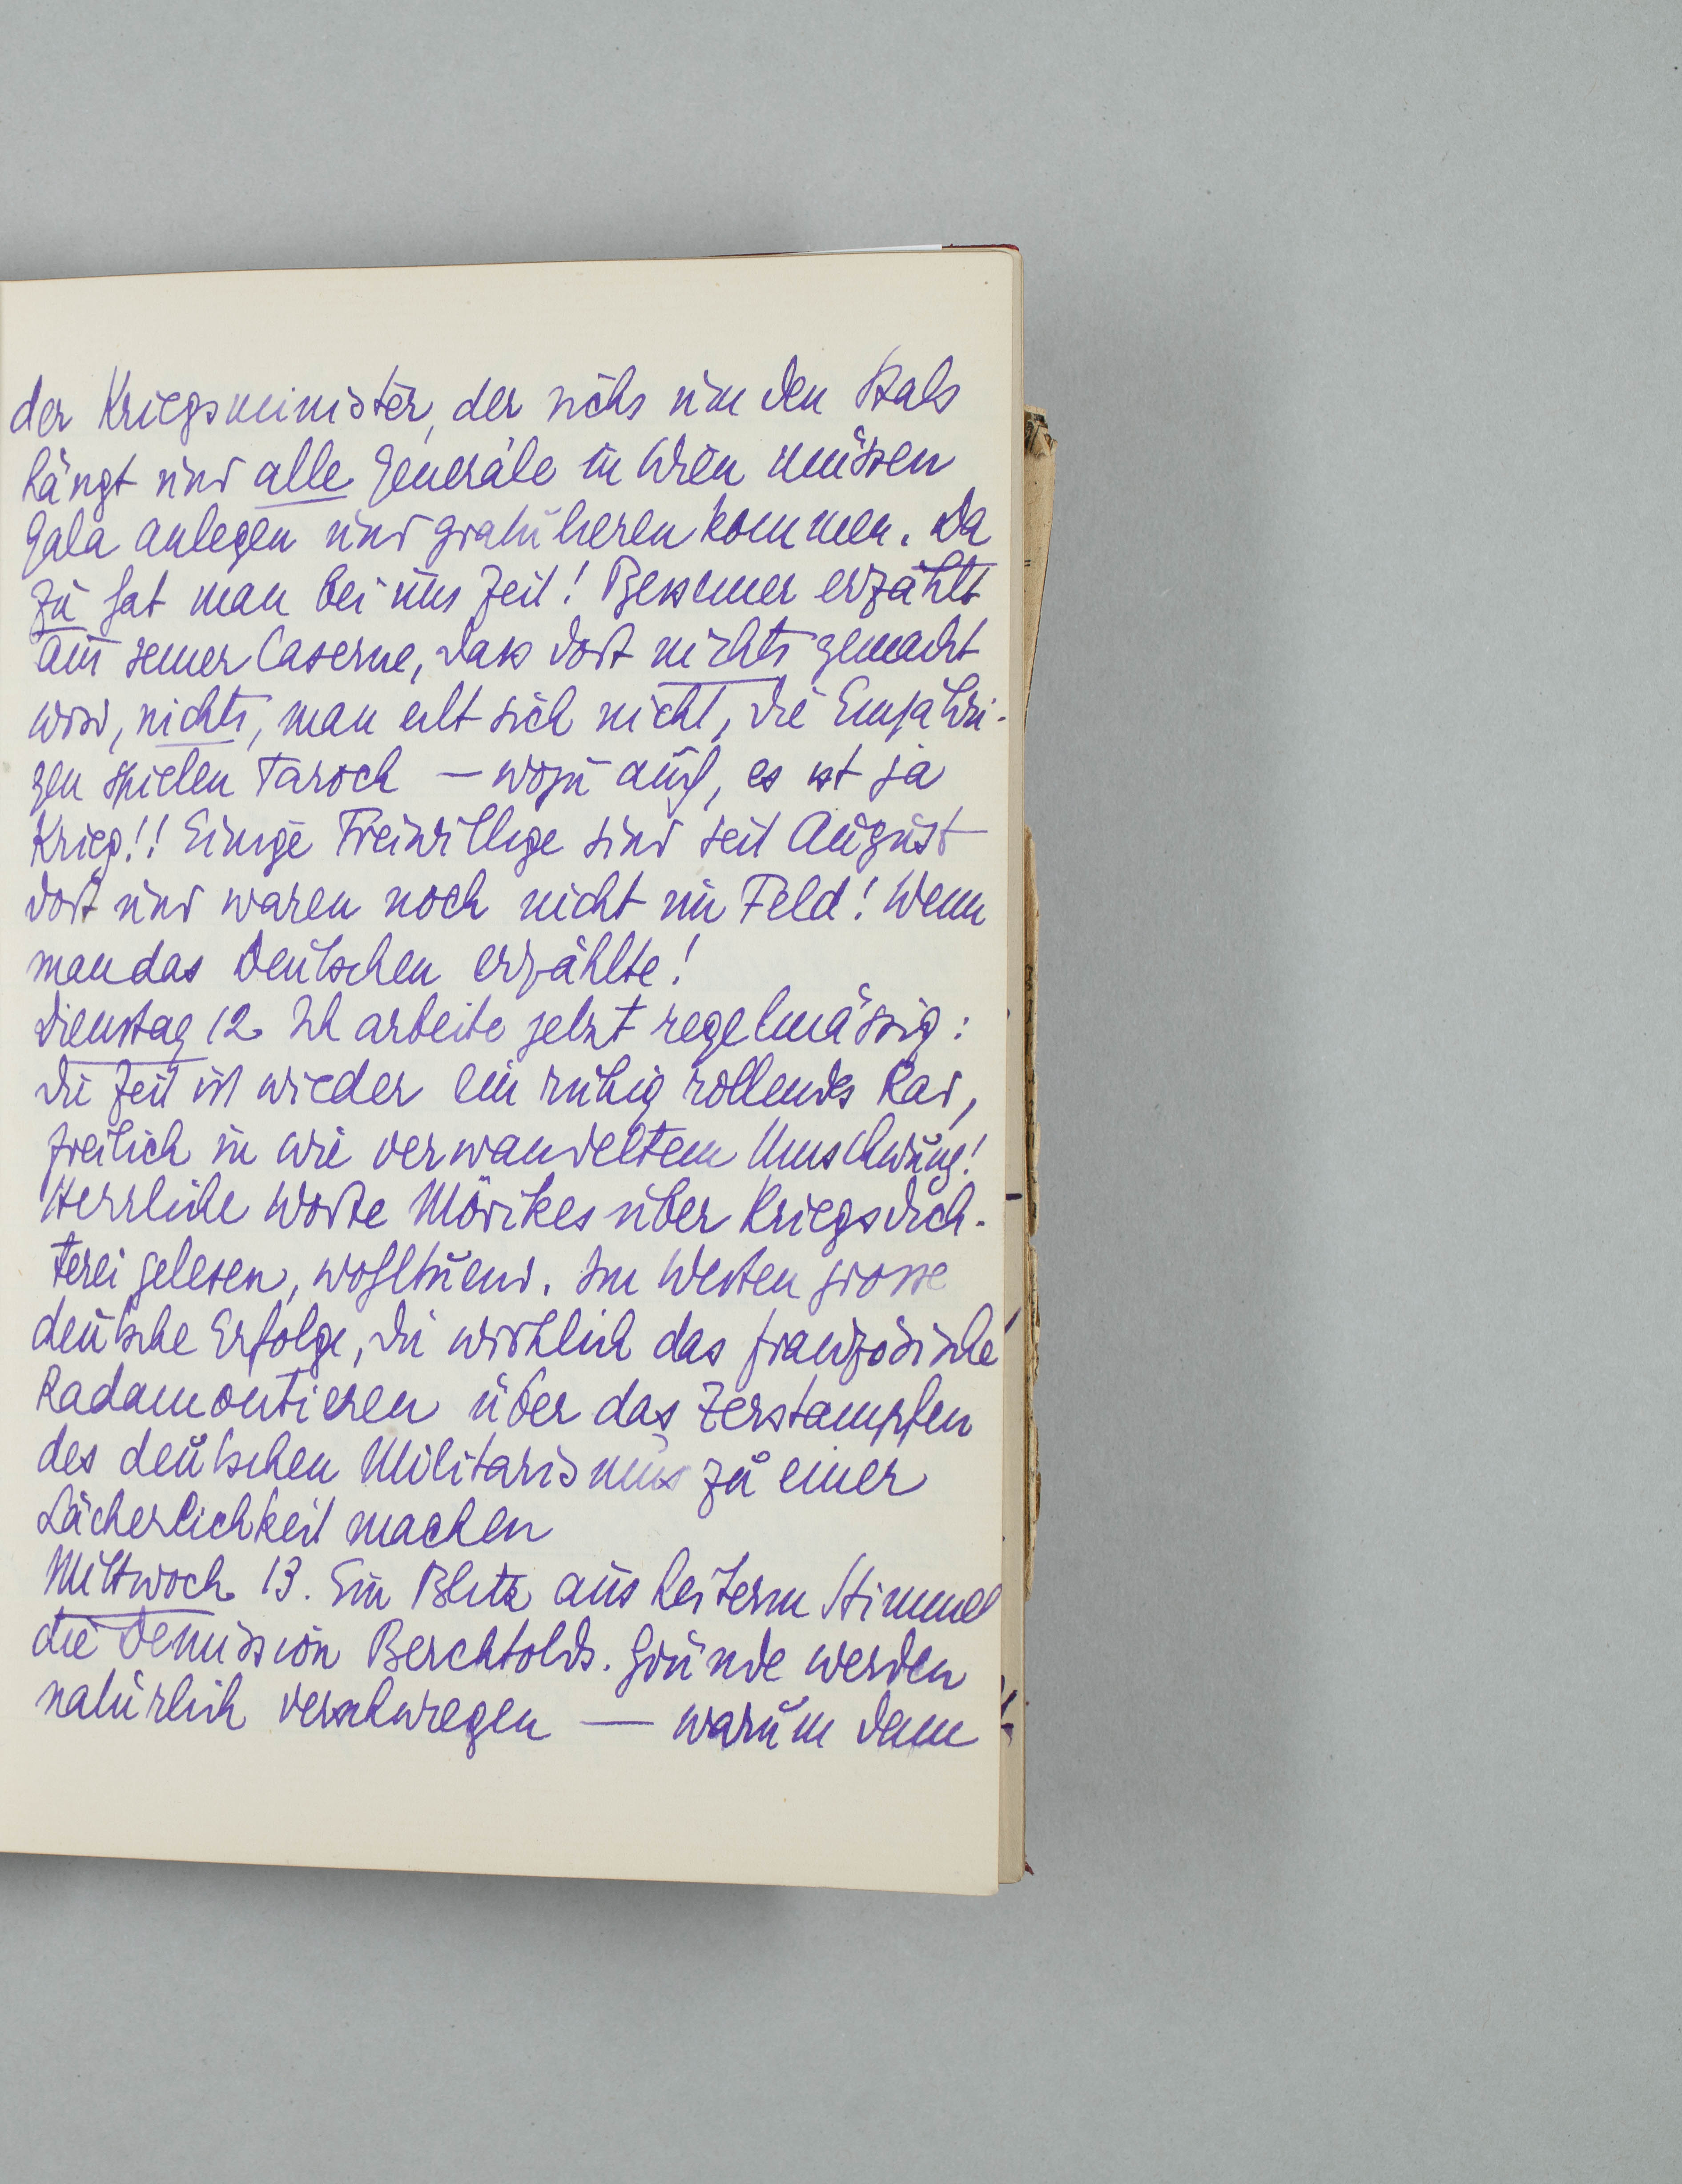 der Kriegsminister, der sichs um den Hals
hängt und alle Generäle in Wien müssen
Gala anlegen und gratulieren kommen. Da
zu hat man bei uns Zeit! Bessemer erzählt
aus seiner Caserne, dass dort nichts gemacht
wird, nichts, man eilt sich nicht, die Einjähri-
gen spielen Taroch – wozu auch, es ist ja
Krieg!! Einige Freiwillige sind seit August
dort und waren noch nicht im Feld! Wenn
man das Deutschen erzählte!
Dienstag 12 Ich arbeite jetzt regelmässig:
die Zeit ist wieder ein ruhig rollendes Rad,
freilich in wie verwandeltem Umschwung!
Herrliche Worte Mörikes über Kriegsdich-
terei gelesen, wohltuend. Im Westen grosse
deutsche Erfolge, die wirklich das französische
Radamontieren über das Zerstampfen
des deutschen Militarismus zu einer
Lächerlichkeit machen
Mittwoch 13. Ein Blitz aus heiterm Himmel
die Demission Berchtolds. Gründe werden
natürlich verschwiegen — warum denn